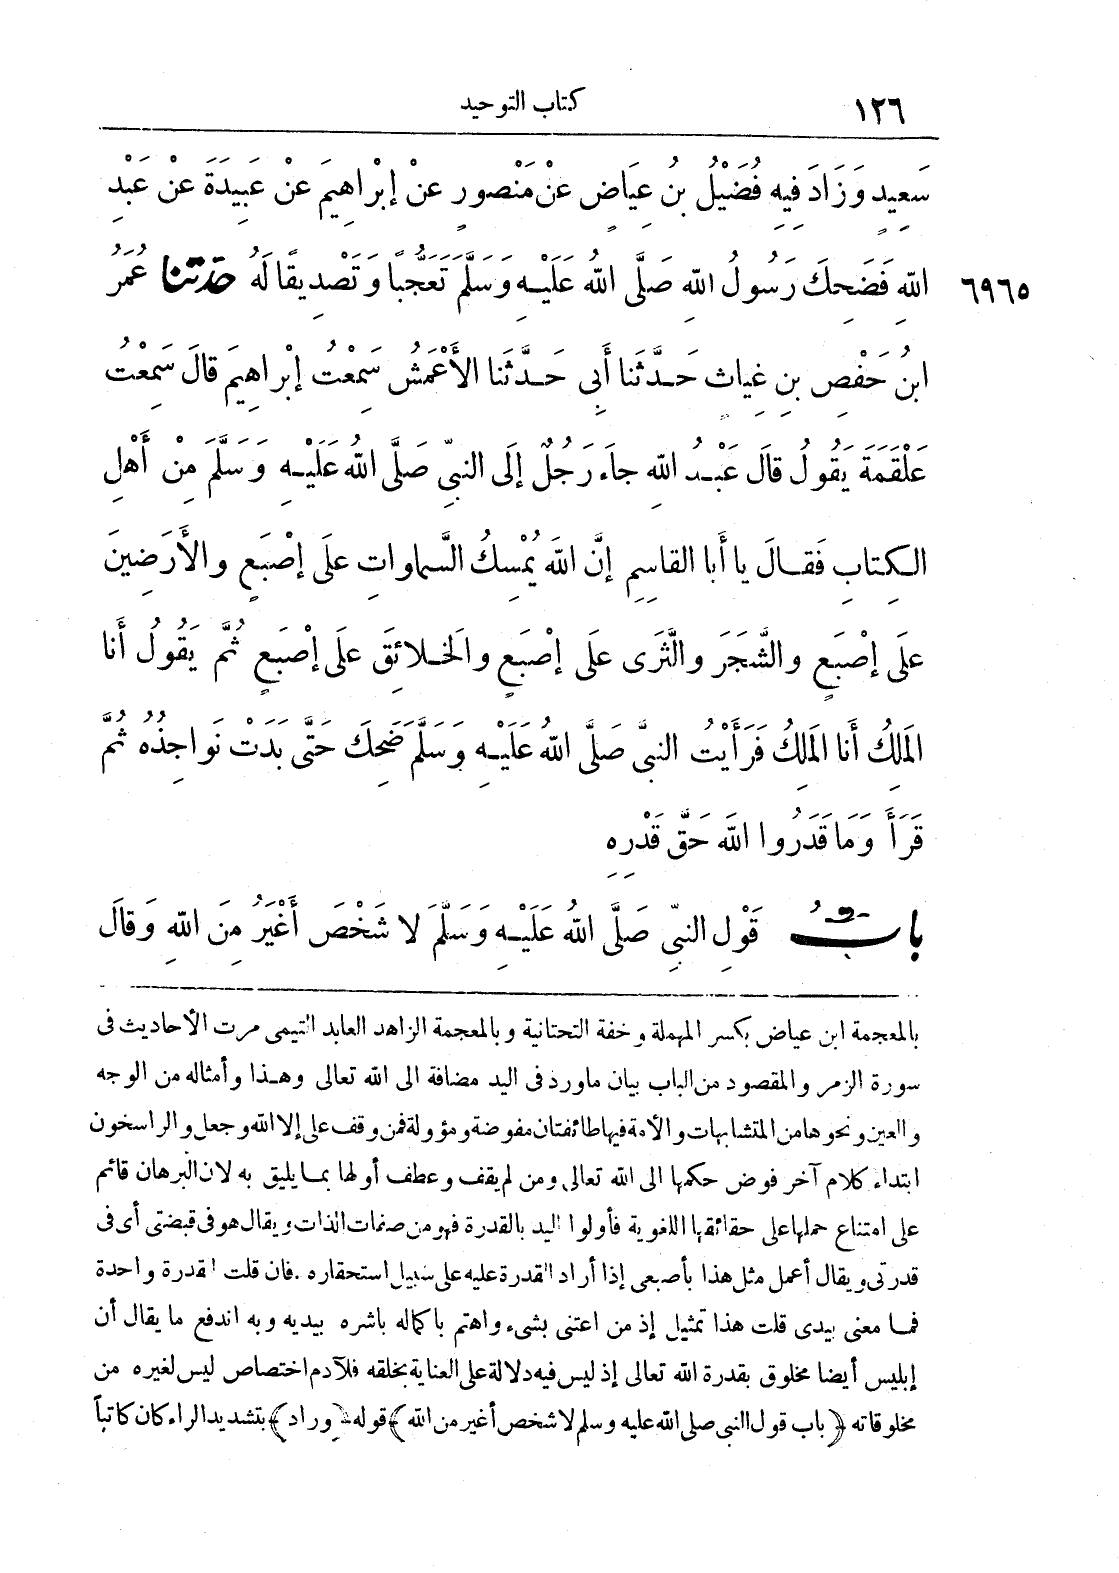 ١٢٦ كتاب التوحيد
سَعِيدٍ وَزَادَ فِيهِ فُضَيْلُ بنُ عِيَاضٍ عنْ مَنْصورٍ عنْ إبْراهِيمَ عنْ عَبِيدَةَ عنْ عَبْدِ
٦٩٦٥ اللهِ فَضَحِكَ رَسُولُ اللهِ صَلَّى اللهُ عَلَيْهِ وَسَلَّمَ تَعَجُّبًا وَتَصْدِيقًا لَهُ حدثنا عُمَرُ
ابنُ حَفْصِ بنِ غِياثٍ حَدَّثَنا أَبِي حَدَّثَنا الأَعْمَشُ سَمِعْتُ إبْراهِيمَ قالَ سَمِعْتُ
عَلْقَمَةَ يَقُولُ قالَ عَبْدُ اللهِ جاءَ رَجُلٌ إلَى النبيِّ صَلَّى اللهُ عَلَيْهِ وَسَلَّمَ مِنْ أَهْلِ
الكِتابِ فَقالَ يا أَبا القاسِمِ إنَّ اللهَ يُمْسِكُ السَّماواتِ علَى إصْبَعٍ والأَرَضِينَ
علَى إصْبَعٍ والشَّجَرَ والثَّرَى علَى إصْبَعٍ والخَلائِقَ علَى إصْبَعٍ ثُمَّ يَقُولُ أَنا
المَلِكُ أَنا المَلِكُ فَرَأَيْتُ النبيَّ صَلَّى اللهُ عَلَيْهِ وَسَلَّمَ ضَحِكَ حَتَّى بَدَتْ نَواجِذُهُ ثُمَّ
قَرَأَ وَمَا قَدَرُوا اللهَ حَقَّ قَدْرِهِ
بابُ قَوْلِ النبيِّ صَلَّى اللهُ عَلَيْهِ وَسَلَّمَ لا شَخْصَ أَغْيَرُ مِنَ اللهِ وَقالَ
بالمعجمة ابن عياض بكسر المهملة وخفة التحتانية وبالمعجمة الزاهد العابد التيمى مرت الأحاديث فى
سورة الزمر والمقصود من الباب بيان ماورد فى اليد مضافة الى الله تعالى وهذا وأمثاله من الوجه
والعين ونحوها من المتشابهات والأمة فيها طائفتان مفوضة ومؤولة فمن وقف على إلا الله وجعل والراسخون
ابتداء كلام آخر فوض حكمها الى الله تعالى ومن لم يقف وعطف أولها بما يليق به لان البرهان قائم
على امتناع حملها على حقائقها اللغوية فأولوا اليد بالقدرة فهو من صفات الذات ويقال هو فى قبضتى أى فى
قدرتى ويقال أعمل مثل هذا بأصبعى إذا أراد القدرة عليه على سبيل استحقاره . فان قلت القدرة واحدة
فما معنى بيدى قلت هذا تمثيل إذ من اعتنى بشىء واهتم باكماله باشره بيديه وبه اندفع ما يقال أن
إبليس أيضا مخلوق بقدرة الله تعالى إذ ليس فيه دلالة على العناية بخلقه فلآدم اختصاص ليس لغيره من
مخلوقاته ﴿باب قول النبى صلى الله عليه وسلم لا شخص أغير من الله﴾ قوله ﴿وراد﴾ بتشديد الراء كان كاتباً